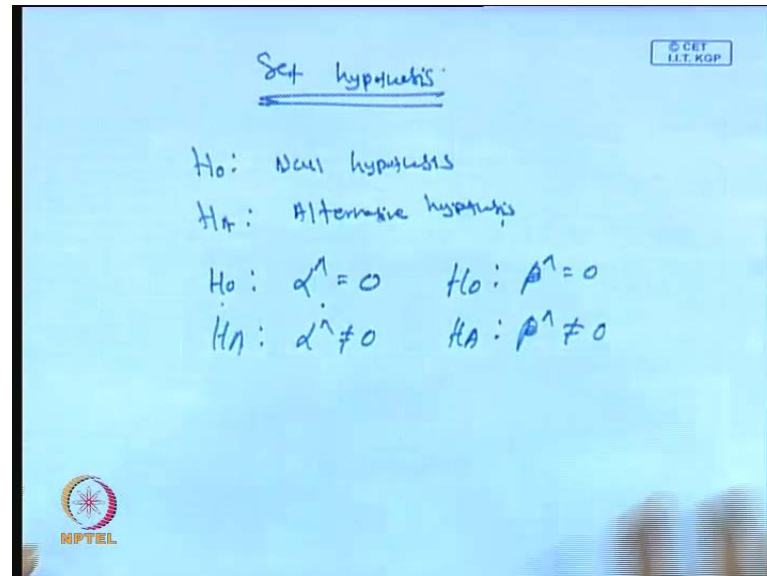 © CET
I.I.T. KGP
Set hypothesis
H0: Null hypothesis
HA: Alternative hypothesis
H0: α^ = 0 H0: β^ = 0
HA: α^ ≠ 0 HA: β^ ≠ 0
NPTEL